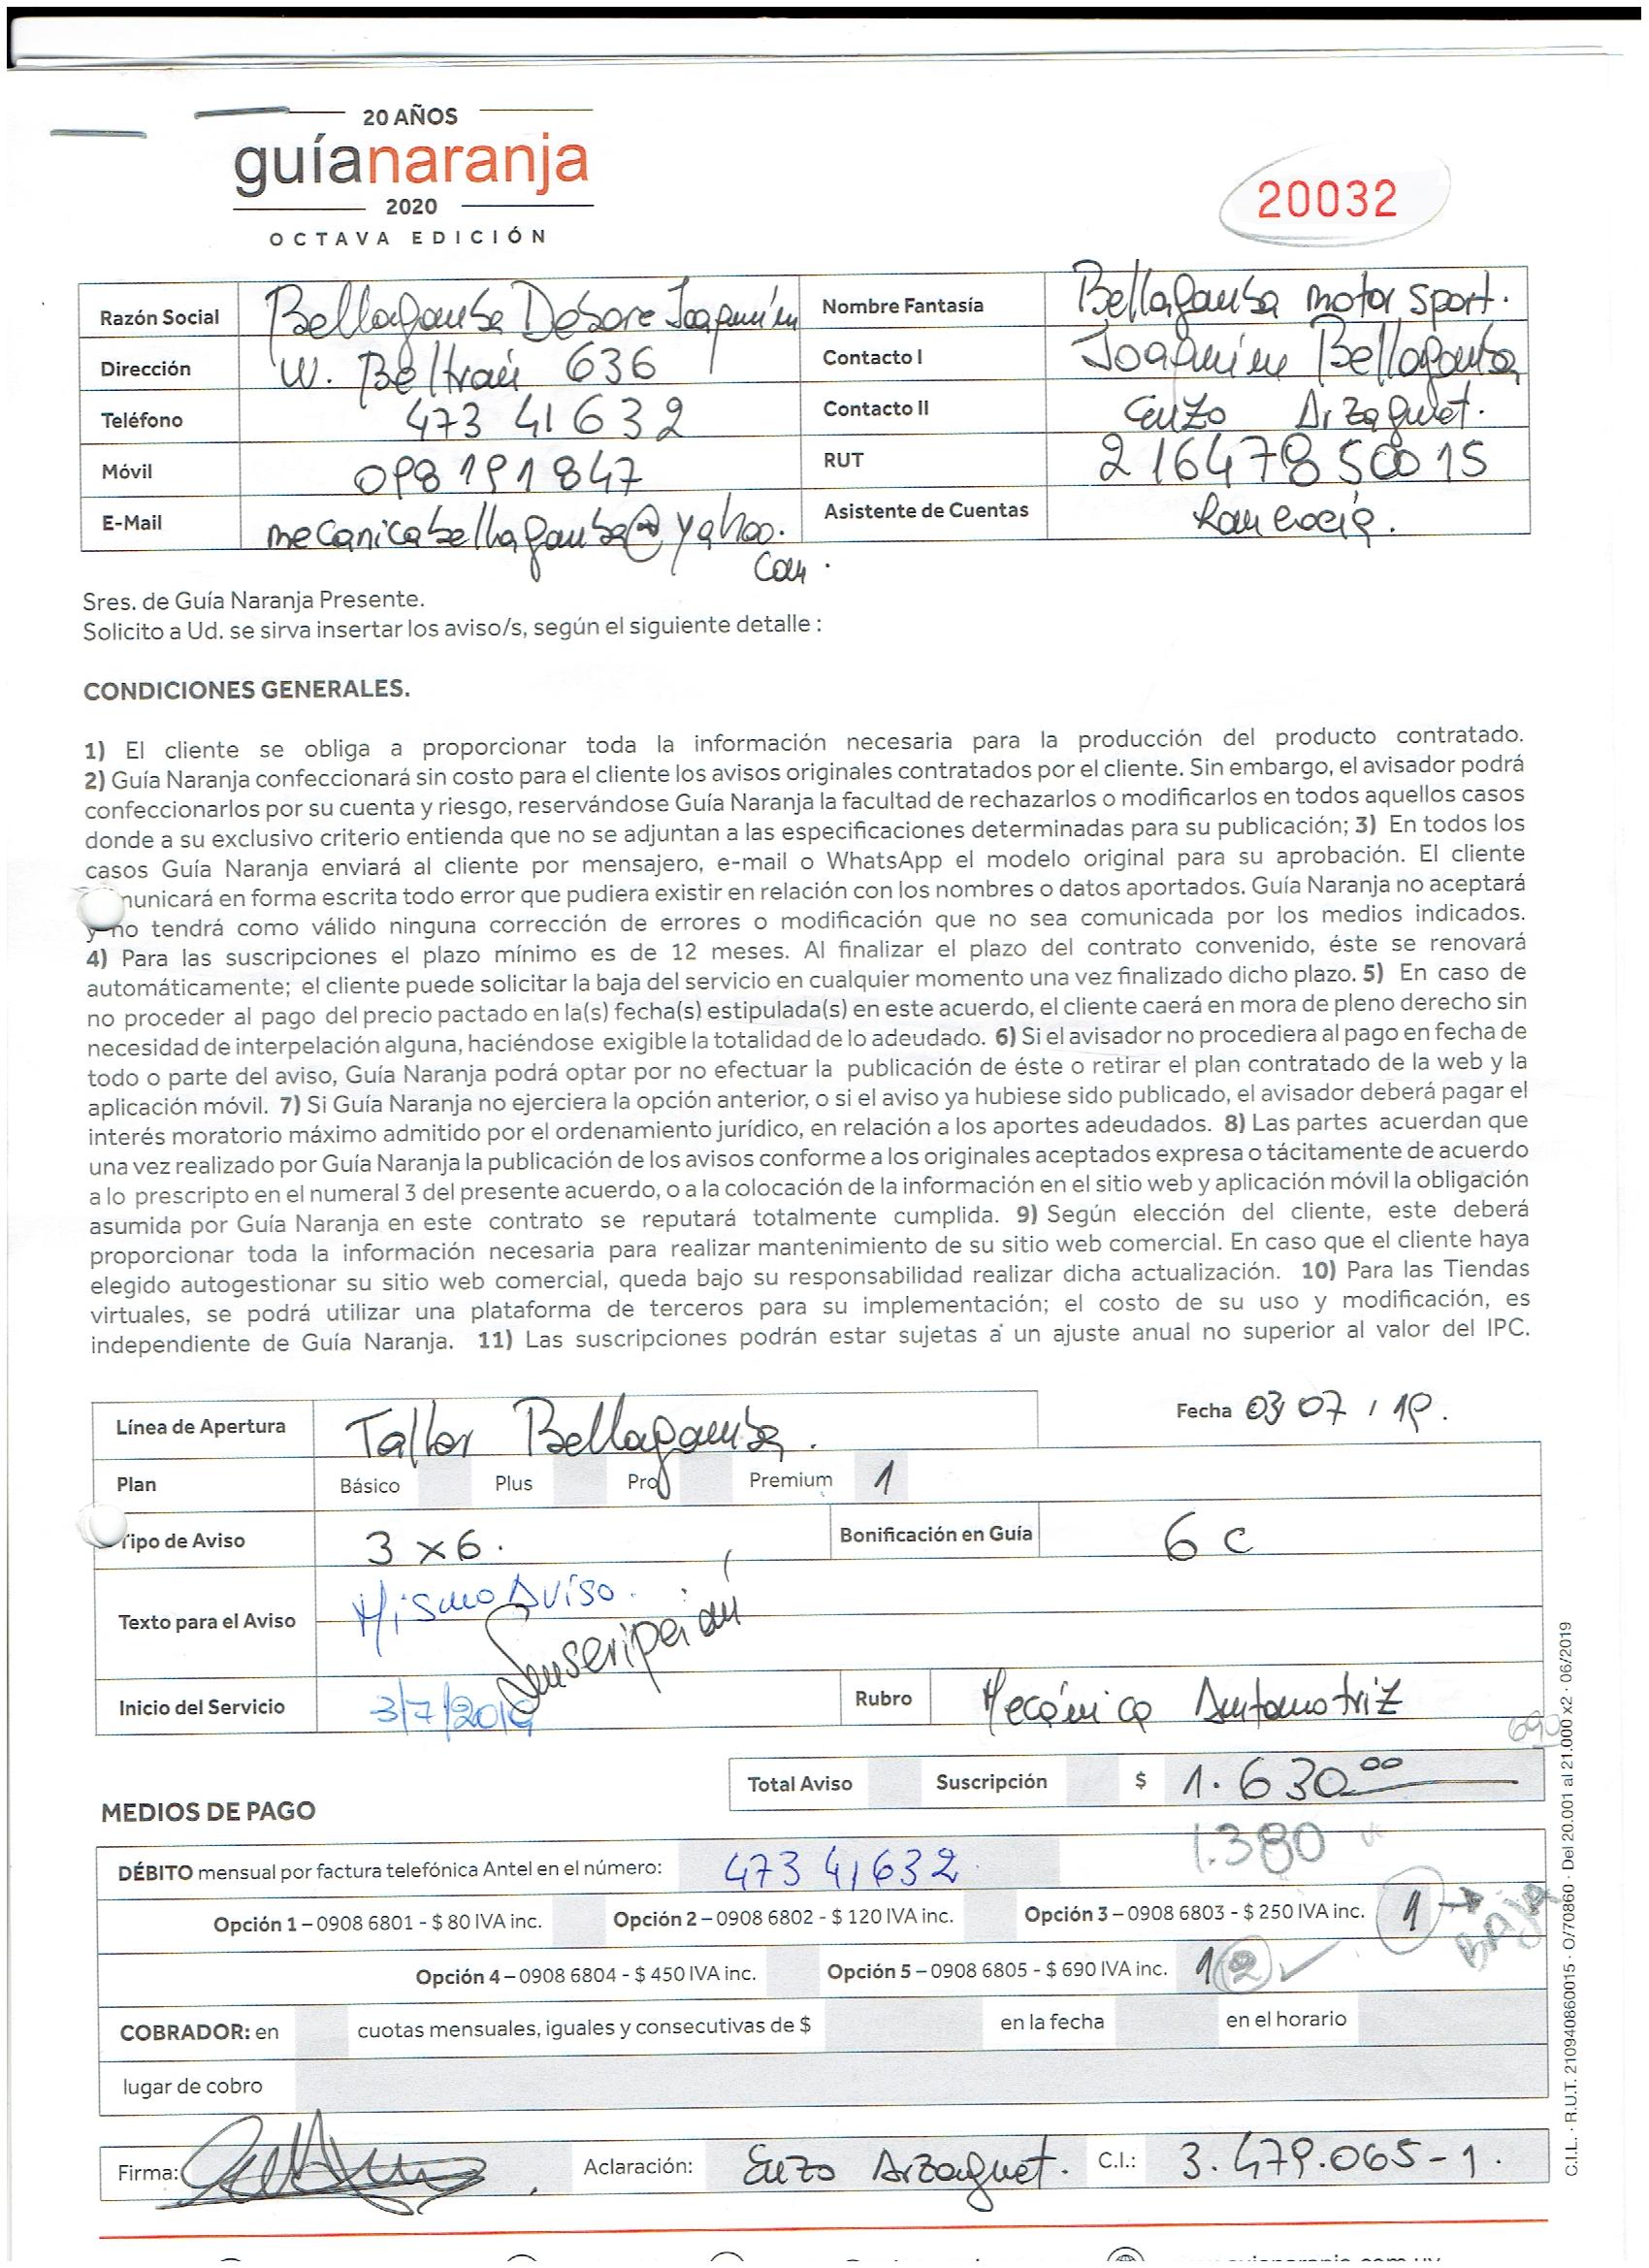 20 AÑOS
guíanaranja
2020
OCTAVA EDICIÓN
20032
Razón Social Bellagamba Debore Joaquín Nombre Fantasía Bellagamba motor sport.
Dirección W. Beltrán 636 Contacto I Joaquín Bellagamba
Teléfono 473 41632 Contacto II Enzo Arzaguet.
Móvil 098 191 847 RUT 216478500015
E-Mail mecanicabellagamba@yahoo. Asistente de Cuentas
com.
Sres. de Guía Naranja Presente.
Solicito a Ud. se sirva insertar los aviso/s, según el siguiente detalle :
CONDICIONES GENERALES.
1) El cliente se obliga a proporcionar toda la información necesaria para la producción del producto contratado.
2) Guía Naranja confeccionará sin costo para el cliente los avisos originales contratados por el cliente. Sin embargo, el avisador podrá
confeccionarlos por su cuenta y riesgo, reservándose Guía Naranja la facultad de rechazarlos o modificarlos en todos aquellos casos
donde a su exclusivo criterio entienda que no se adjuntan a las especificaciones determinadas para su publicación; 3) En todos los
casos Guía Naranja enviará al cliente por mensajero, e-mail o WhatsApp el modelo original para su aprobación. El cliente
municará en forma escrita todo error que pudiera existir en relación con los nombres o datos aportados. Guía Naranja no aceptará
y no tendrá como válido ninguna corrección de errores o modificación que no sea comunicada por los medios indicados.
4) Para las suscripciones el plazo mínimo es de 12 meses. Al finalizar el plazo del contrato convenido, éste se renovará
automáticamente; el cliente puede solicitar la baja del servicio en cualquier momento una vez finalizado dicho plazo. 5) En caso de
no proceder al pago del precio pactado en la(s) fecha(s) estipulada(s) en este acuerdo, el cliente caerá en mora de pleno derecho sin
necesidad de interpelación alguna, haciéndose exigible la totalidad de lo adeudado. 6) Si el avisador no procediera al pago en fecha de
todo o parte del aviso, Guía Naranja podrá optar por no efectuar la publicación de éste o retirar el plan contratado de la web y la
aplicación móvil. 7) Si Guía Naranja no ejerciera la opción anterior, o si el aviso ya hubiese sido publicado, el avisador deberá pagar el
interés moratorio máximo admitido por el ordenamiento jurídico, en relación a los aportes adeudados. 8) Las partes acuerdan que
una vez realizado por Guía Naranja la publicación de los avisos conforme a los originales aceptados expresa o tácitamente de acuerdo
a lo prescripto en el numeral 3 del presente acuerdo, o a la colocación de la información en el sitio web y aplicación móvil la obligación
asumida por Guía Naranja en este contrato se reputará totalmente cumplida. 9) Según elección del cliente, este deberá
proporcionar toda la información necesaria para realizar mantenimiento de su sitio web comercial. En caso que el cliente haya
elegido autogestionar su sitio web comercial, queda bajo su responsabilidad realizar dicha actualización. 10) Para las Tiendas
virtuales, se podrá utilizar una plataforma de terceros para su implementación; el costo de su uso y modificación, es
independiente de Guía Naranja. 11) Las suscripciones podrán estar sujetas a un ajuste anual no superior al valor del IPC.
Línea de Apertura Taller Bellagamba. Fecha 03/07/19.
Plan Básico Plus Pro Premium 1
Tipo de Aviso 3x6. Bonificación en Guía 6 c
Texto para el Aviso Mismo Aviso.
Suscripción
Inicio del Servicio 3/7/2019 Rubro Mecánica Automotriz
690
Total Aviso Suscripción $ 1.630 00
MEDIOS DE PAGO
1.380
DÉBITO mensual por factura telefónica Antel en el número: 473 41632
Opción 1 – 0908 6801 - $ 80 IVA inc. Opción 2 – 0908 6802 - $ 120 IVA inc. Opción 3 – 0908 6803 - $ 250 IVA inc. 1 → Baja
Opción 4 – 0908 6804 - $ 450 IVA inc. Opción 5 – 0908 6805 - $ 690 IVA inc. 1 2 ✓
COBRADOR: en cuotas mensuales, iguales y consecutivas de $ en la fecha en el horario
lugar de cobro
Firma: Aclaración: Enzo Arzaguet. C.I.: 3.479.065-1.
C.I.L. · R.U.T. 210940860015 · O/70860 · Del 20.001 al 21.000 x2 · 06/2019